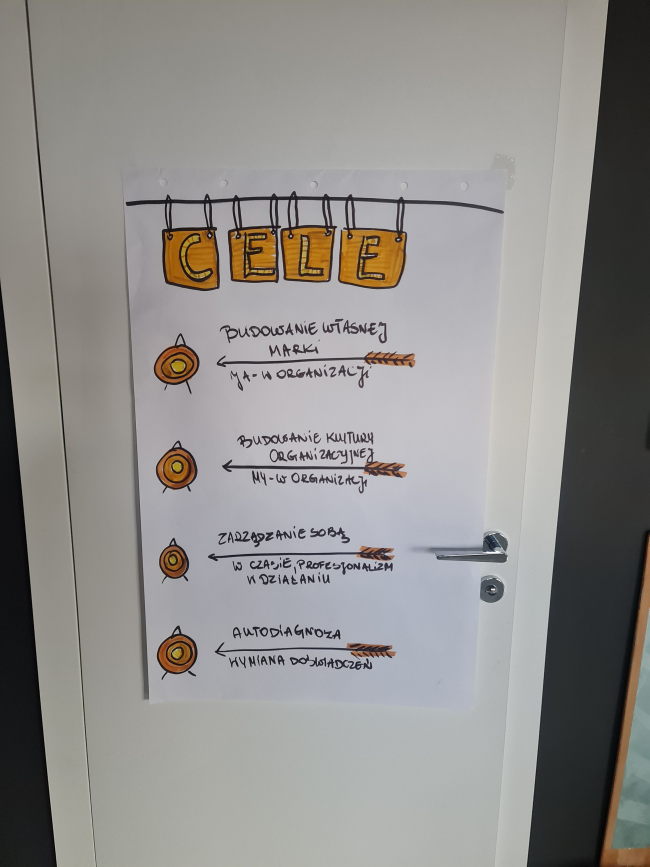 CELE
BUDOWANIE WŁASNEJ
MARKI
JA - W ORGANIZACJI
BUDOWANIE KULTURY
ORGANIZACYJNEJ
MY - W ORGANIZACJI
ZARZĄDZANIE SOBĄ
W CZASIE, PROFESJONALIZM
W DZIAŁANIU
AUTODIAGNOZA
WYMIANA DOŚWIADCZEŃ